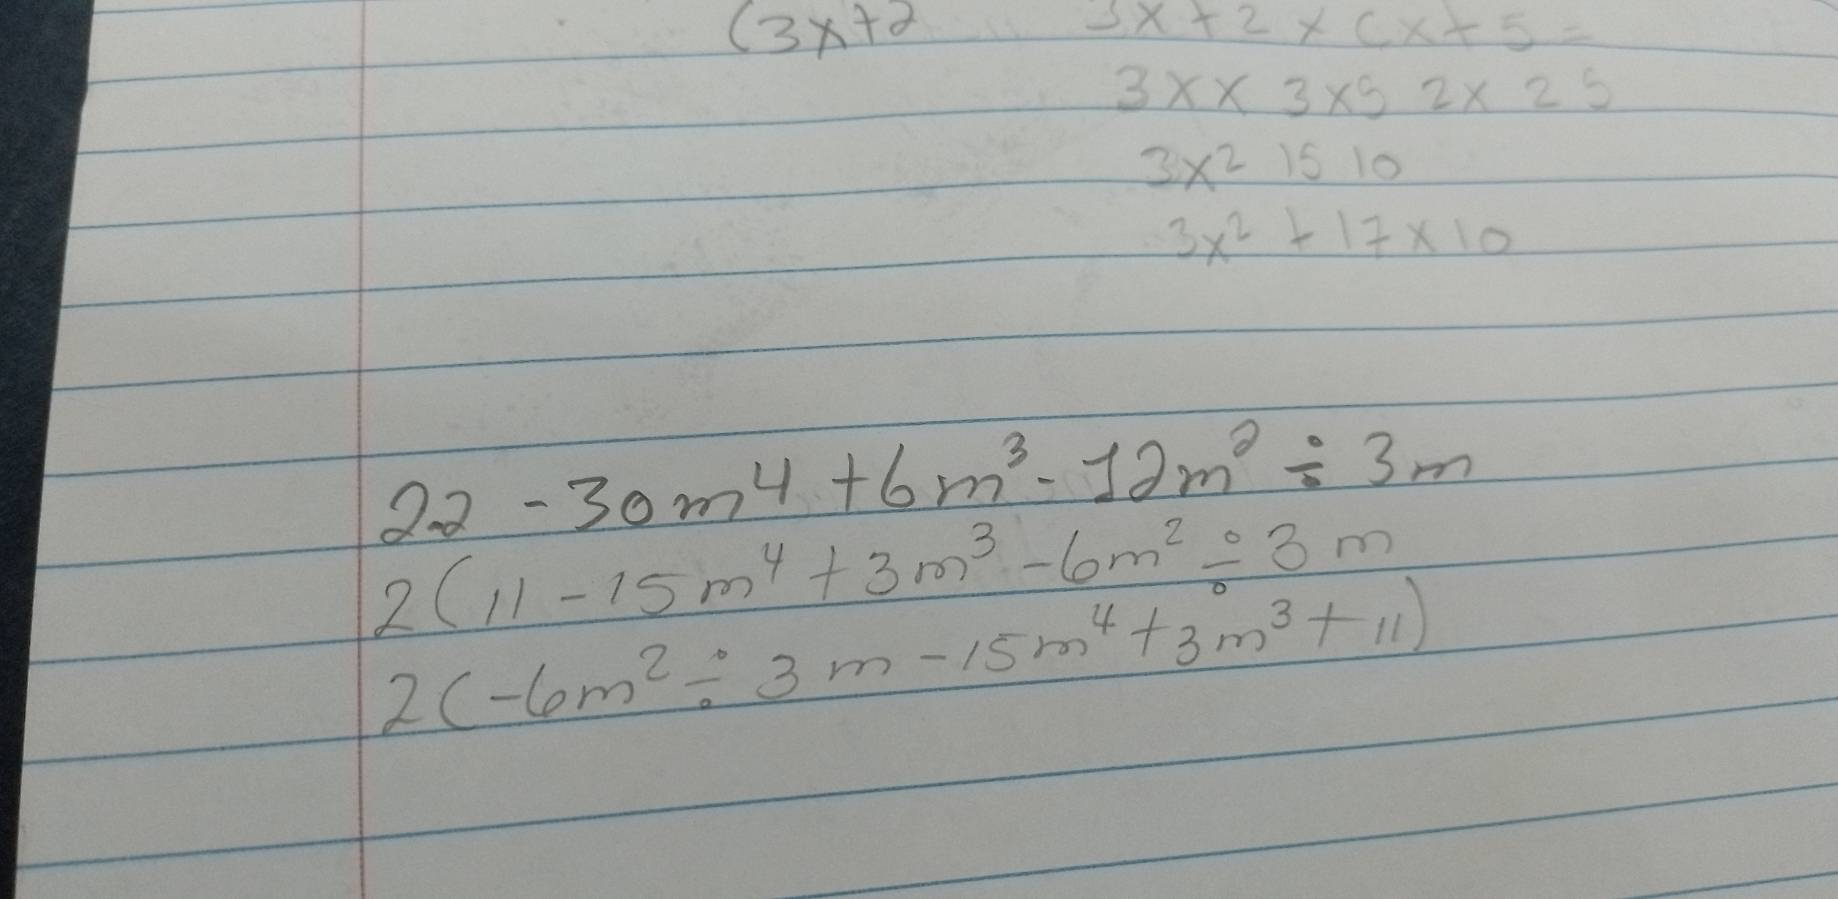 (3x+2 3x+2x(x+5=
3xx 3x5 2x 25
3x² 15 10
3x² + 17x10
22 -30m⁴ +6m³ - 12m² ÷ 3m
2(11 -15m⁴ +3m³ -6m² ÷ 3m
2(-6m² ÷ 3m -15m⁴ +3m³ + 11)